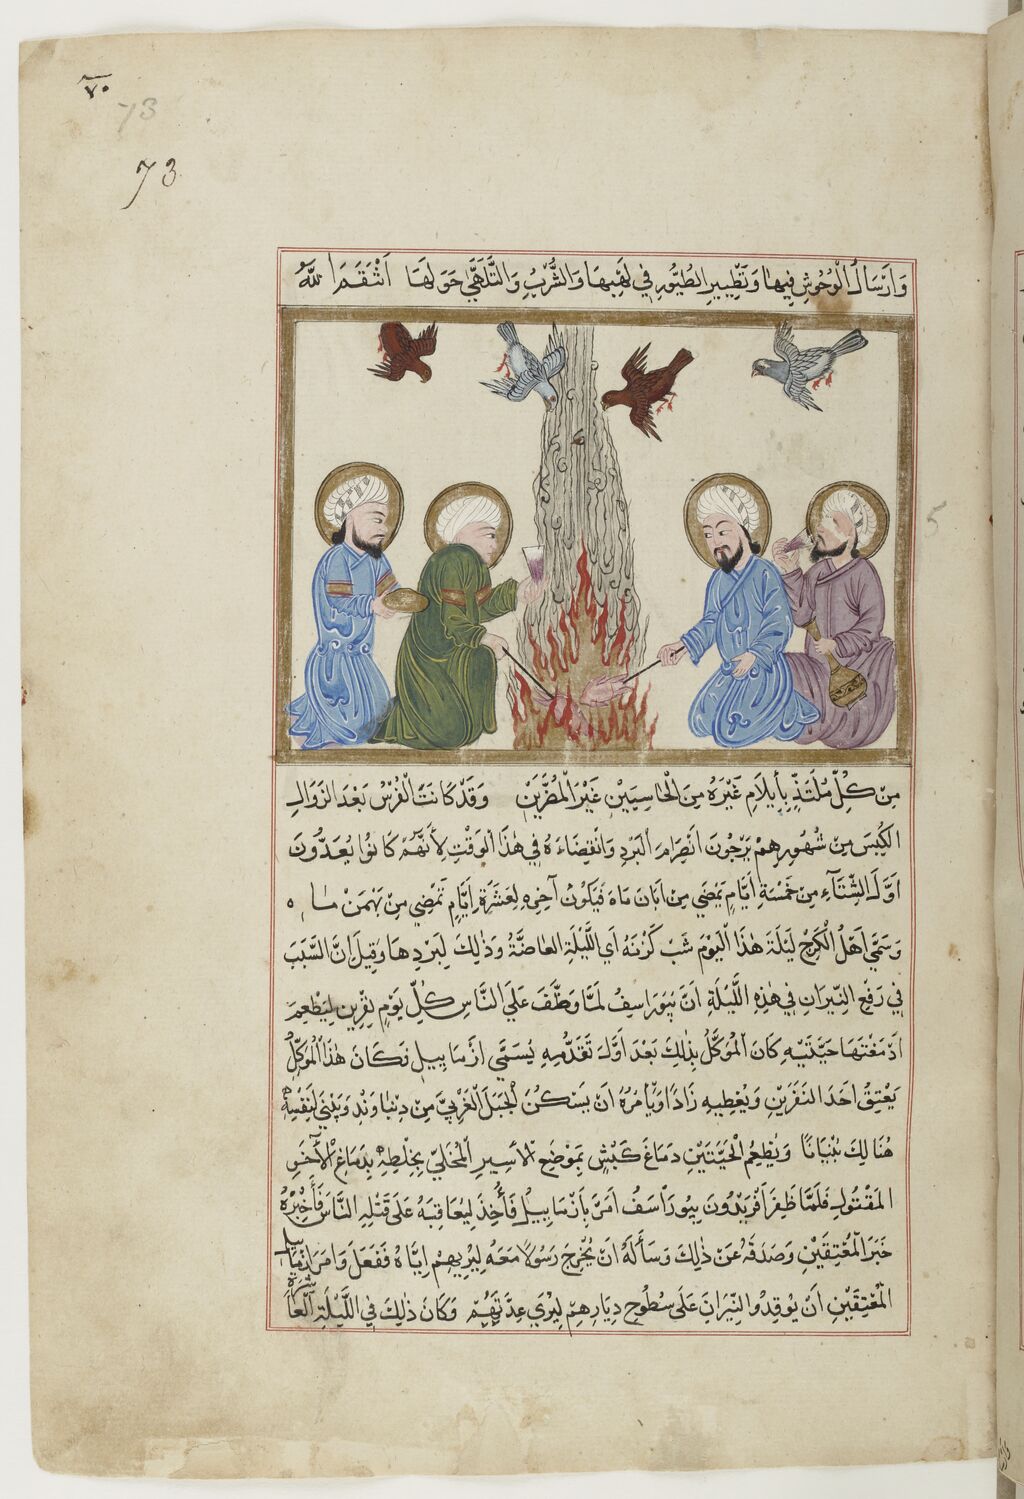 ٧٠
73
73
وَإرْسَالُ الْوُحُوشِ فِيهَا وَتَطْيِيرِ الطُّيُورِ فِي لَهَبِهَا وَالشُّرْبِ وَالتَّلَهِّي حَوْلَهَا انْتَقَمَ اللهُ
5
مِنْ كُلِّ مُلْتَذٍّ بِإيلَامِ غَيْرِهُ مِنَ الْحَاسِيِينَ غَيْرِ الْمُضِرِّينَ وَقَدْ كَانَتْ الْفُرْسُ بَعْدَ زَوَالِ
الْكَبْسِ مِنْ شُهُورِهِمْ يَرْجُونَ انْصِرَامَ الْبَرْدِ وَانْقِضَاءَهُ فِي هٰذَا الْوَقْتِ لِأَنَّهُمْ كَانُوا يُعَدُّونَ
أَوَّلَ الشِّتَآءِ مِنْ خَمْسَةِ أَيَّامٍ تَمْضِي مِنْ ابَانَ مَاهَ فَيَكُونُ آخِرِهِ لِعَشَرَةِ اَيَّامٍ تَمْضِي مِنْ بَهْمَنْ مَاه
وَسَمَّي اَهْلُ الْكَرَجِ لَيْلَةَ هٰذَا الْيَوْمَ شَبْ كَزْنَهُ أَيِ اللَّيْلَةِ الْعَاضَّةُ وَذٰلِكَ لِبَرْدِهَا وَقِيلَ اِنَّ السَّبَبَ
فِي رَفْعِ النِّيرَانِ فِي هٰذِهِ اللَّيْلَةِ اَنَّ بيُورَاسفُ لَمَّا وَظَّفَ عَلَي النَّاسِ كُلِّ يَوْمٍ نفْرِين لِيُطْعِمَ
ادْمغتَهَا حَيَّتَيْهِ كَانَ الْمُوَكَّلُ بِذٰلِكَ بَعْدَ اَوَّلِ تَقَدُّمِهِ يُسَمَّي ازْمَاييل فَكَانَ هٰذَا الْمُوَكَّلُ
يَعْتِقُ اَحَدَ النَفَرَيْنِ وَيُعْطِيهِ زَادًا وَيَأمُرُهُ اَنْ يَسْكُنَ الْجَبَلَ الْغَرْبِيَّ مِنْ دِنْبَاوَنْدِ وَيَبْنِي لِنَفْسِهِ
هُنَالِكَ بُنْيَانًا وَيُطْعِمُ الْحَيَّتَيْنِ دِمَاغَ كَبْشٍ بِمَوْضِعِ الْأَسِيرِ الْمُخَلَّي بِخَلْطِهِ بِدِمَاغِ الْآخَرِ
الْمَقْتُولِ فَلَمَّا ظَفِرَ اَفْرِيدُونَ بِبيُورَاسفُ اَمَرَ بَازْمَاييلُ فَأُخِذَ لِيُعَاقِبَهُ عَلَى قَتْلِهِ النَّاسَ فَأَخْبَرَهُ
خَبَرَ الْمُعْتَقِينَ وَصَدَقَهُ عَنْ ذٰلِكَ وَسَأَلَهُ اَنْ يُخْرِجَ رَسُولًا مَعَهُ لِيُرِيهِمْ اِيَّاهُ فَفَعَلَ وَامَرَ ازْمَاييل
الْمُعْتَقِينَ اَنْ يُوقِدُوا النِّيرَانَ عَلَى سُطُوحِ دِيَارِهِمْ لِيُرَي عِدَّتَهُمْ وَكَانَ ذٰلِكَ فِي اللَّيْلَةِ الْعَاشِرَة